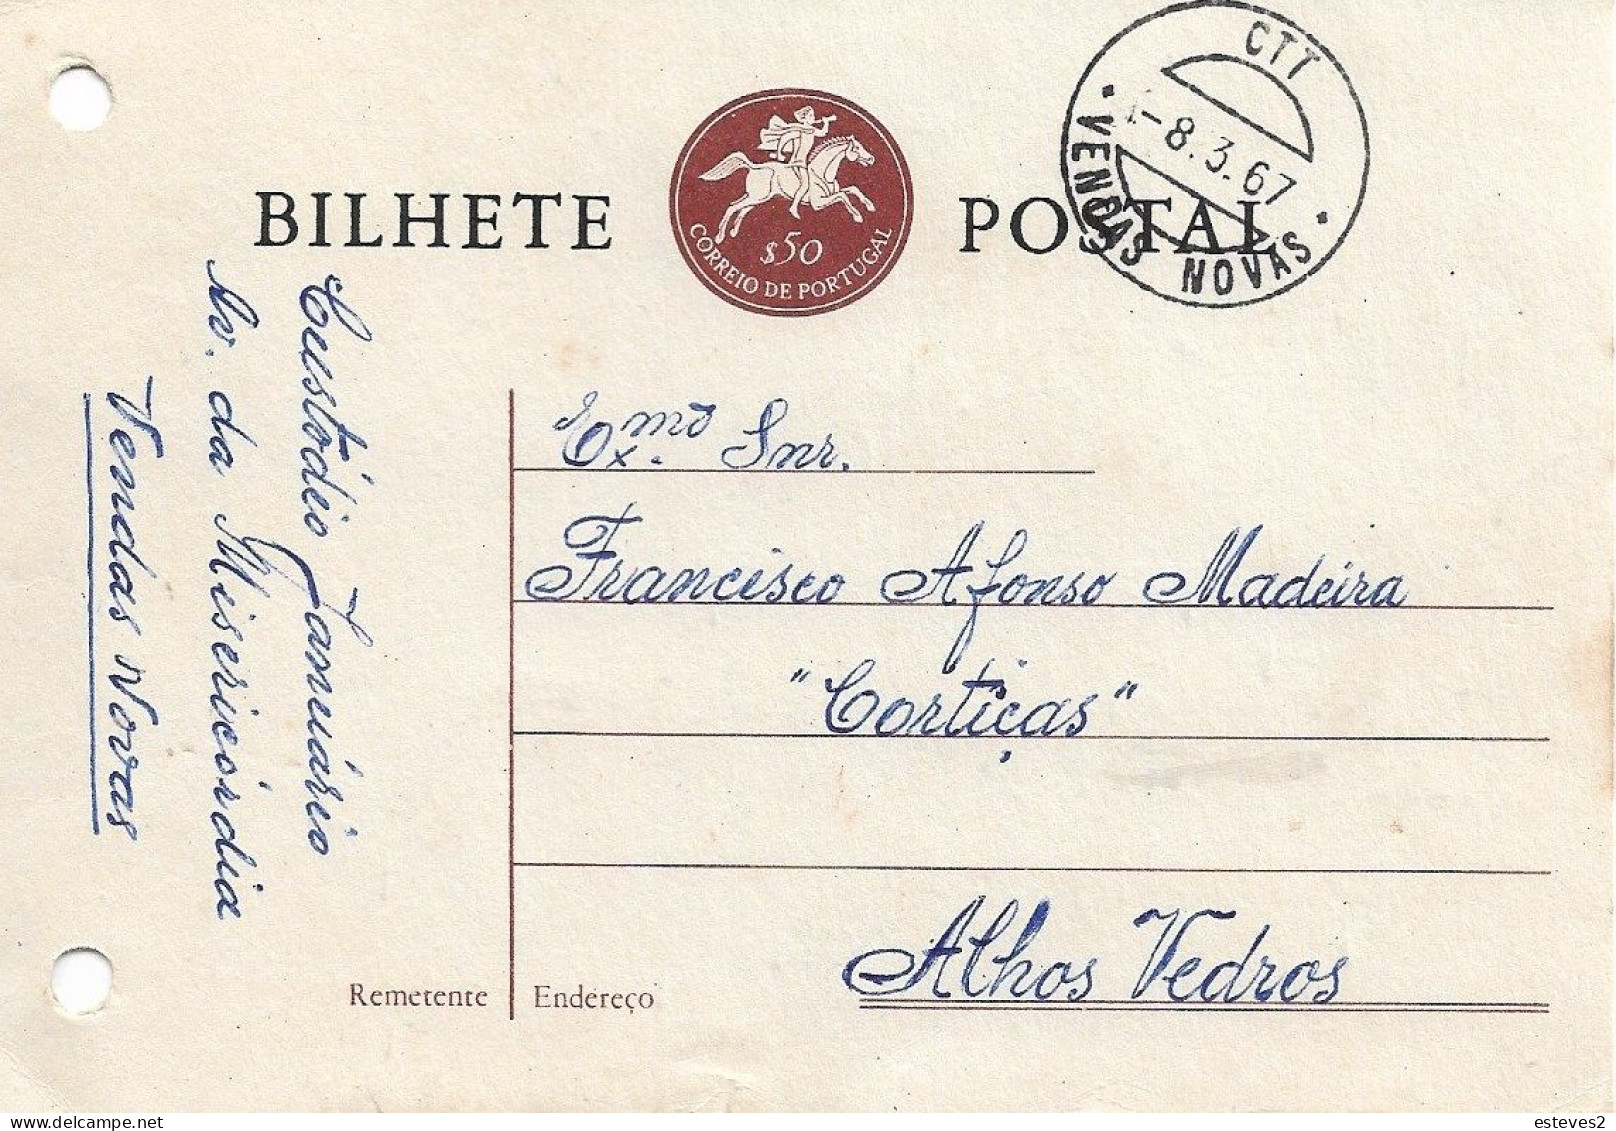 BILHETE POSTAL
$50
CORREIO DE PORTUGAL
CTT
-8.3.67
VENDAS NOVAS
Custódio Januário
Av. da Misericórdia
Vendas Novas
Ex.mo Snr.
Francisco Afonso Madeira
"Cortiças"
Alhos Vedros
Remetente
Endereço
esteves2